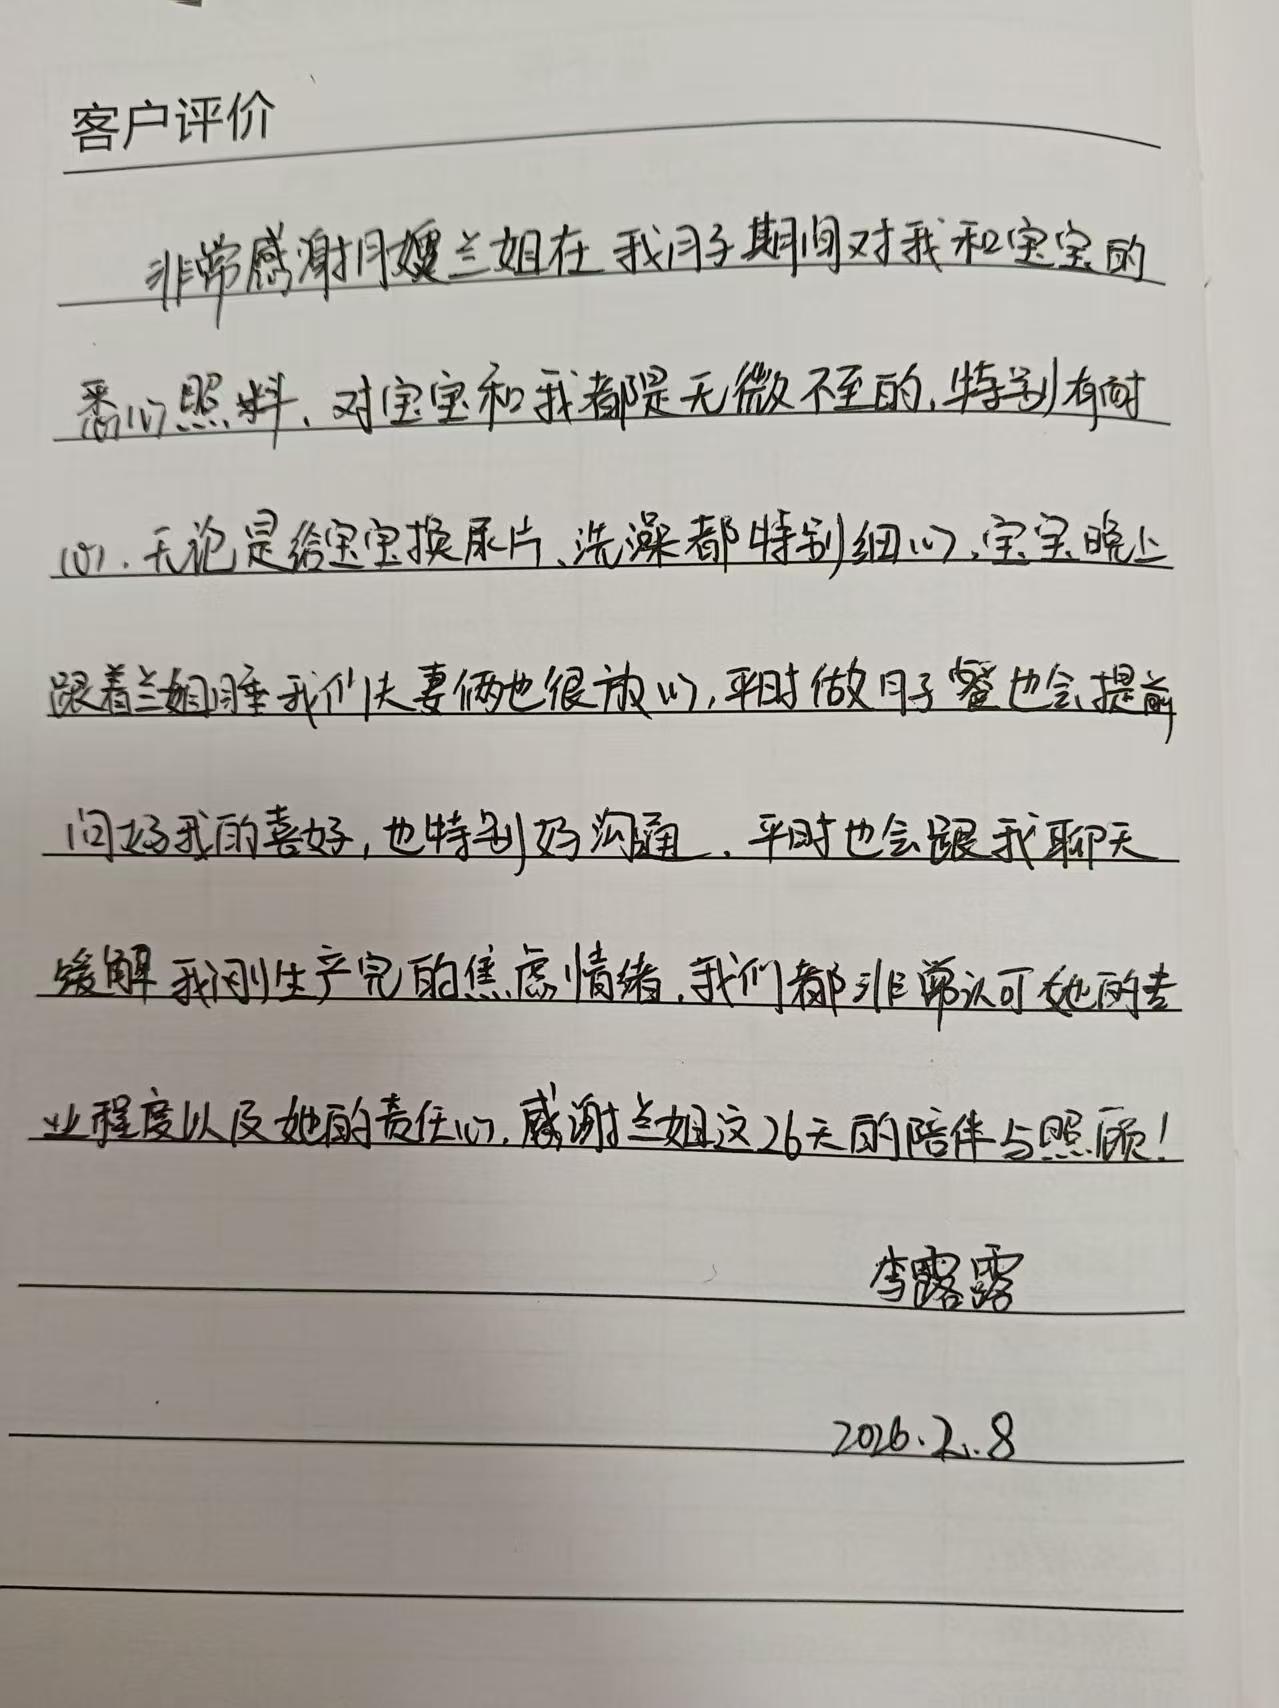 客户评价
非常感谢月嫂兰姐在我月子期间对我和宝宝的
悉心照料、对宝宝和我都是无微不至的,特别有耐
心、无论是给宝宝换尿片、洗澡都特别细心,宝宝晚上
跟着兰姐睡我们夫妻俩也很放心,平时做月子餐也会提前
问好我的喜好,也特别好沟通、平时也会跟我聊天
缓解我刚生产完的焦虑情绪,我们都非常认可她的专
业程度以及她的责任心,感谢兰姐这26天的陪伴与照顾!
李露露
2026.2.8